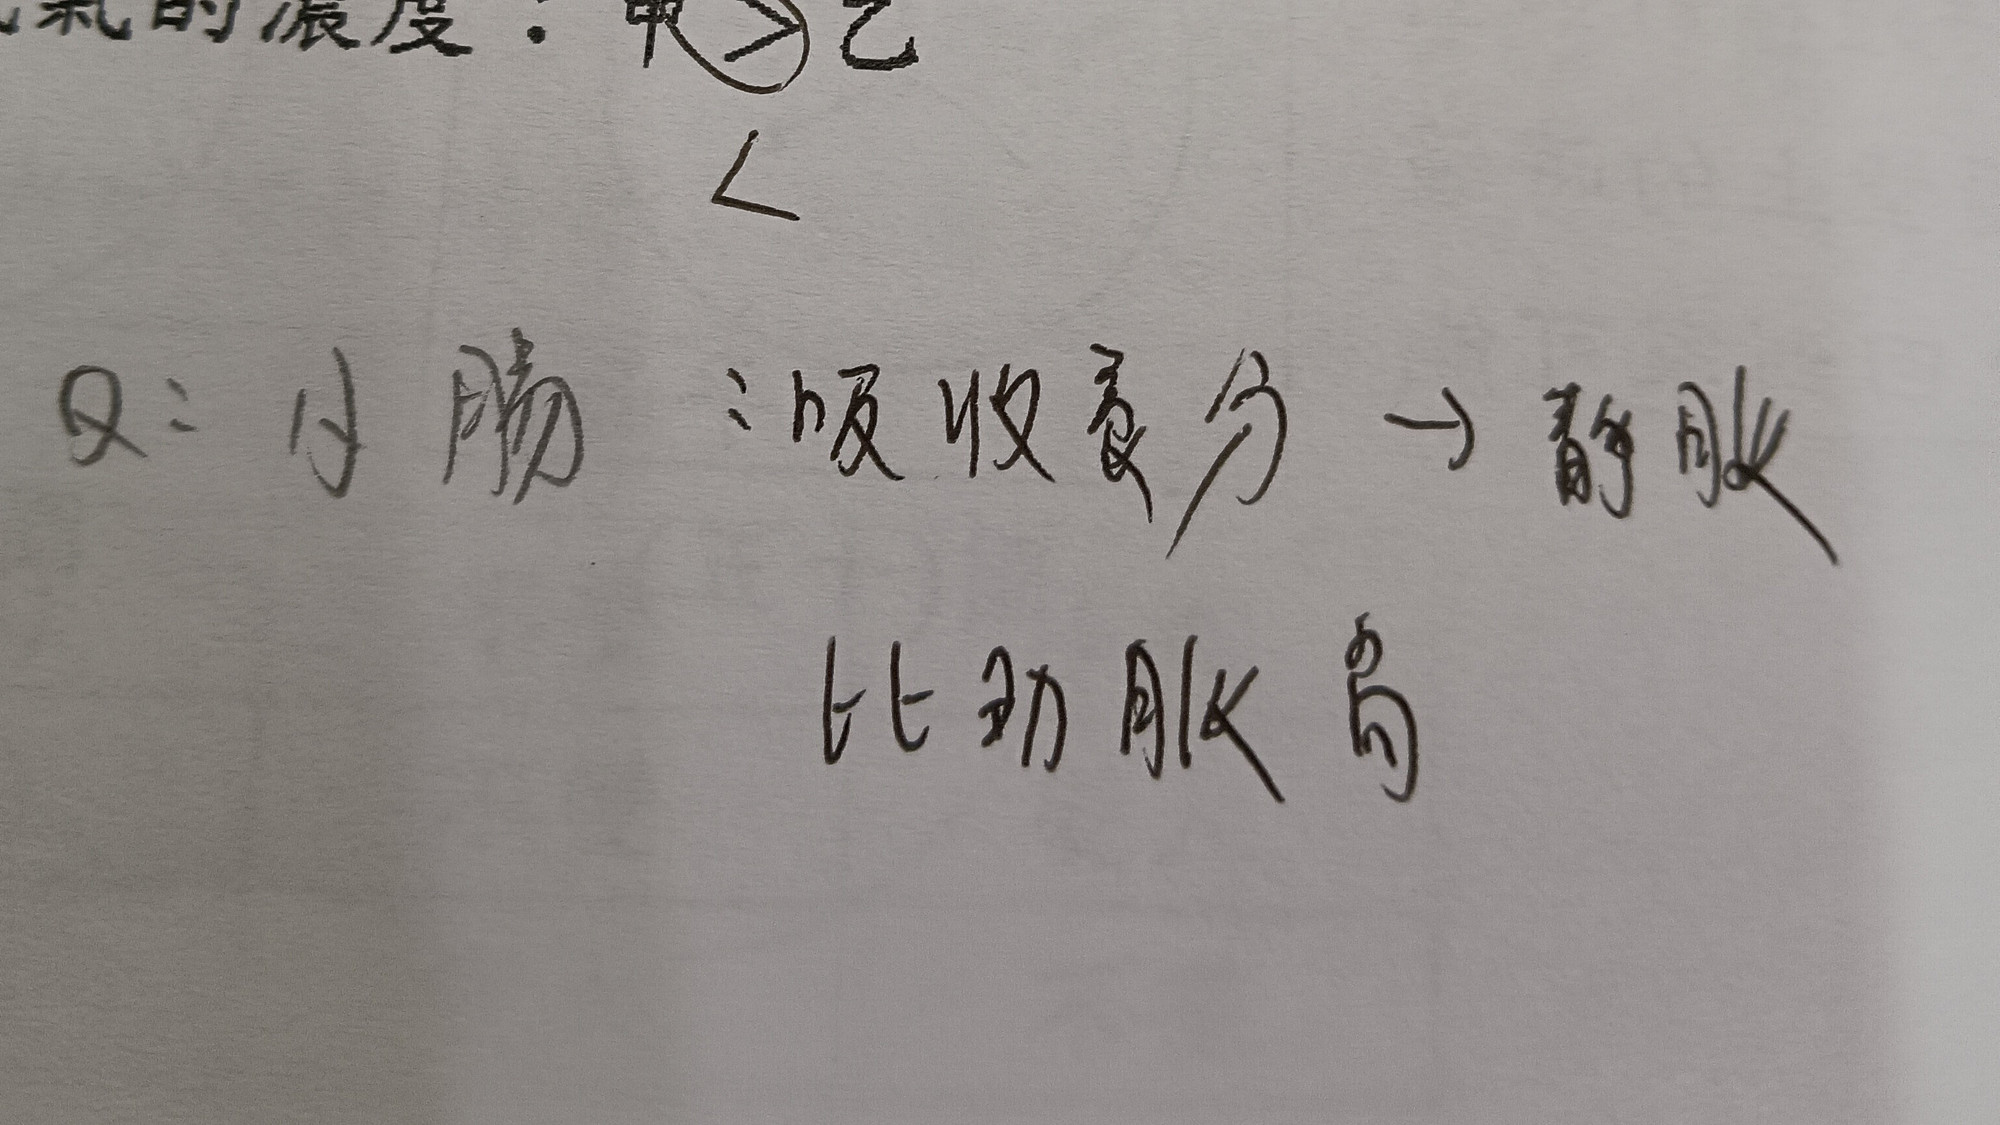 氣的濃度：甲>乙
<
Q：小腸：吸收養分→靜脈
比動脈高